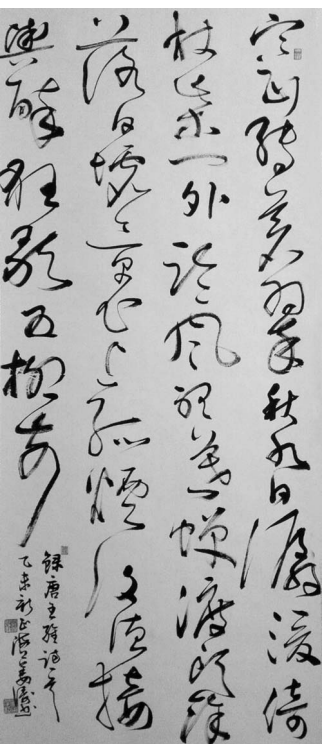 寒山轉蒼翠秋水日潺湲倚
杖柴門外臨風聽暮蟬渡頭餘
落日墟里上孤煙復值接
輿醉狂歌五柳前
錄唐王維詩
乙未